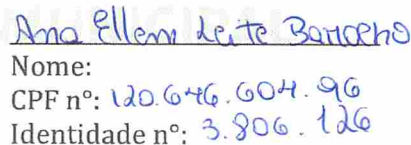 Ana Ellem Leite Barreno
Nome:
CPF nº: 120.646.604.96
Identidade nº: 3.806.126